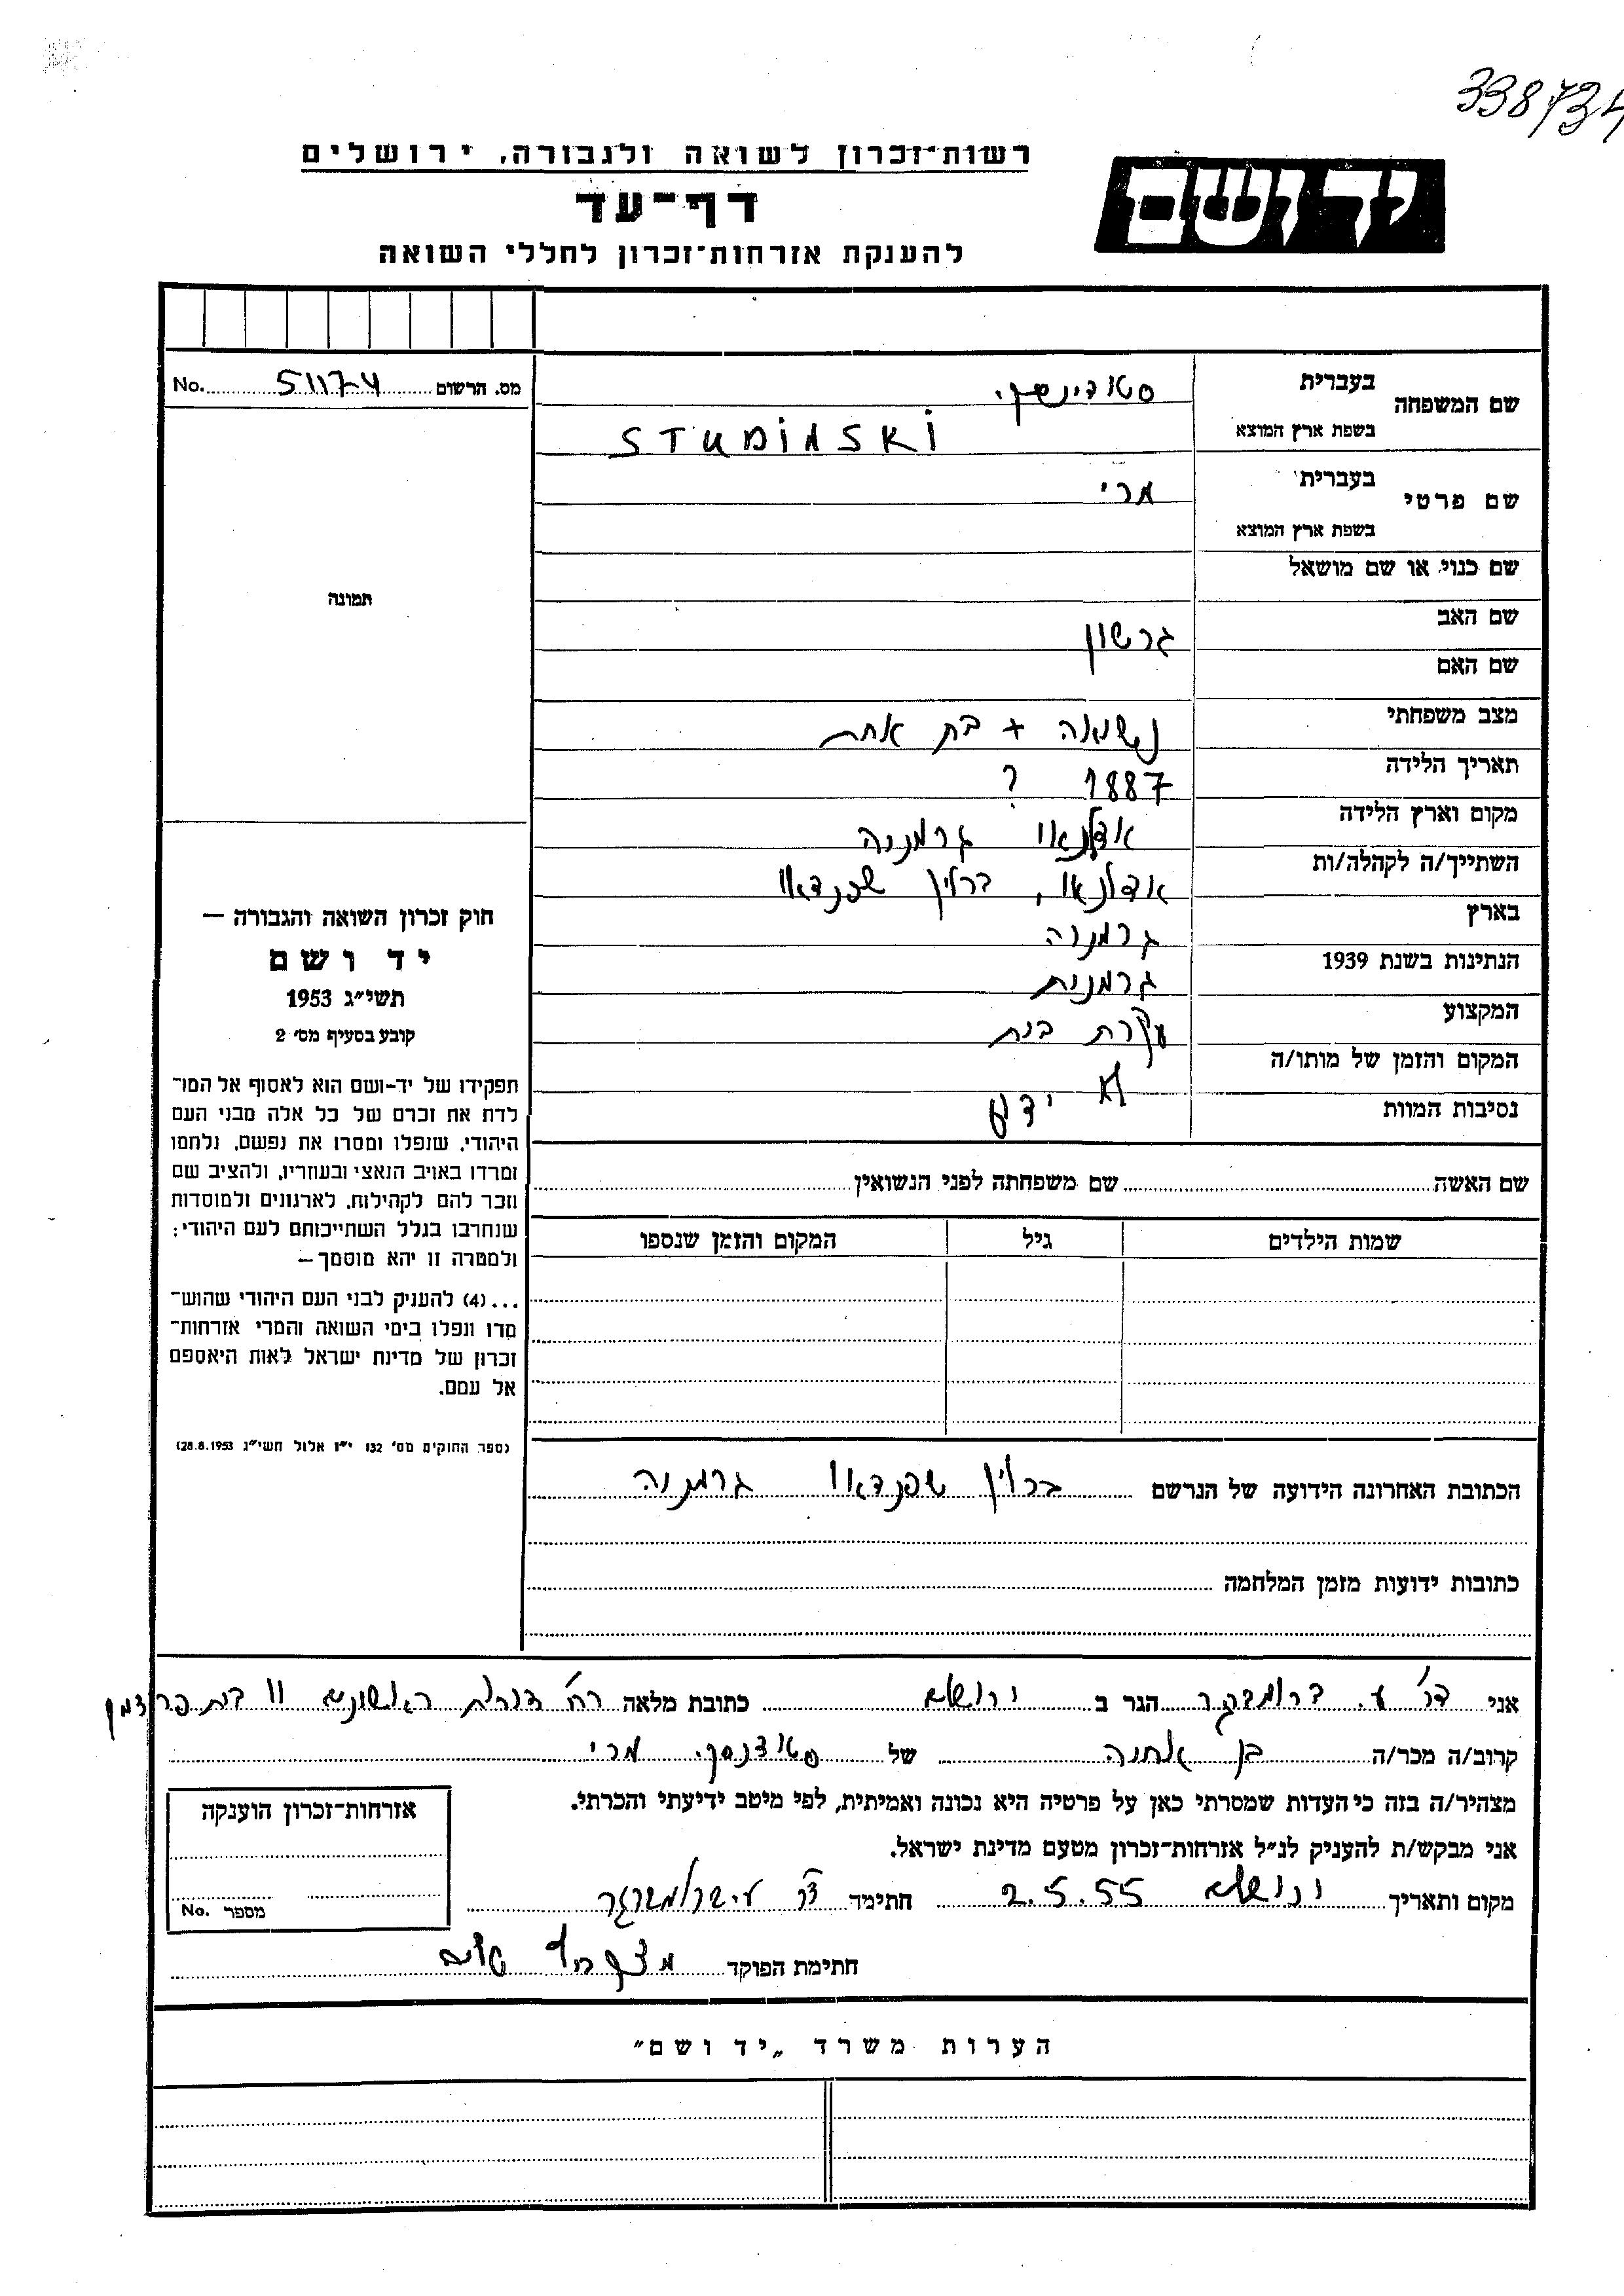 338734
רשות־זכרון לשואה ולגבורה, ירושלים
יד ושם
דף־עד
להענקת אזרחות־זכרון לחללי השואה
מס. הרשום 51174 No.
שם המשפחה בעברית סטודינסקי
בשפת ארץ המוצא STUDINSKI
שם פרטי בעברית מרי
בשפת ארץ המוצא
שם כנוי או שם מושאל
תמונה
שם האב גרשון
שם האם
מצב משפחתי נשואה + בת אחת
תאריך הלידה 1887 ?
מקום וארץ הלידה אדלנאו גרמניה
השתייך/ה לקהלה/ות אדלנאו, ברלין שפנדאו
בארץ גרמניה
הנתינות בשנת 1939 גרמנית
המקצוע עקרת בית
המקום והזמן של מותו/ה לא
נסיבות המוות ידוע
חוק זכרון השואה והגבורה —
יד ושם
תשי״ג 1953
קובע בסעיף מס׳ 2
תפקידו של יד-ושם הוא לאסוף אל המו־
לדת את זכרם של כל אלה מבני העם
היהודי, שנפלו ומסרו את נפשם, נלחמו
ומרדו באויב הנאצי ובעוזריו, ולהציב שם
וזכר להם לקהילות, לארגונים ולמוסדות
שנחרבו בגלל השתייכותם לעם היהודי;
ולמטרה זו יהא מוסמך—
...(4) להעניק לבני העם היהודי שהוש־
מדו ונפלו בימי השואה והמרי אזרחות־
זכרון של מדינת ישראל לאות היאספם
אל עמם.
(ספר החוקים מס׳ 132 י״ז אלול תשי״ג 28.8.1953)
שם האשה שם משפחתה לפני הנשואין
שמות הילדים גיל המקום והזמן שנספו
הכתובת האחרונה הידועה של הנרשם ברלין שפנדאו גרמניה
כתובות ידועות מזמן המלחמה
אני דר׳ ע. הגר ב ירושלים כתובת מלאה רח׳ הראשונים 11 בית
קרוב/ה מכר/ה בן אחיה של מרי
מצהיר/ה בזה כי העדות שמסרתי כאן על פרטיה היא נכונה ואמיתית, לפי מיטב ידיעתי והכרתי.
אני מבקש/ת להעניק לנ״ל אזרחות־זכרון מטעם מדינת ישראל.
מקום ותאריך ירושלים 2.5.55 חתימה דר
אזרחות־זכרון הוענקה
מספר No.
חתימת הפוקד
הערות משרד „יד ושם״